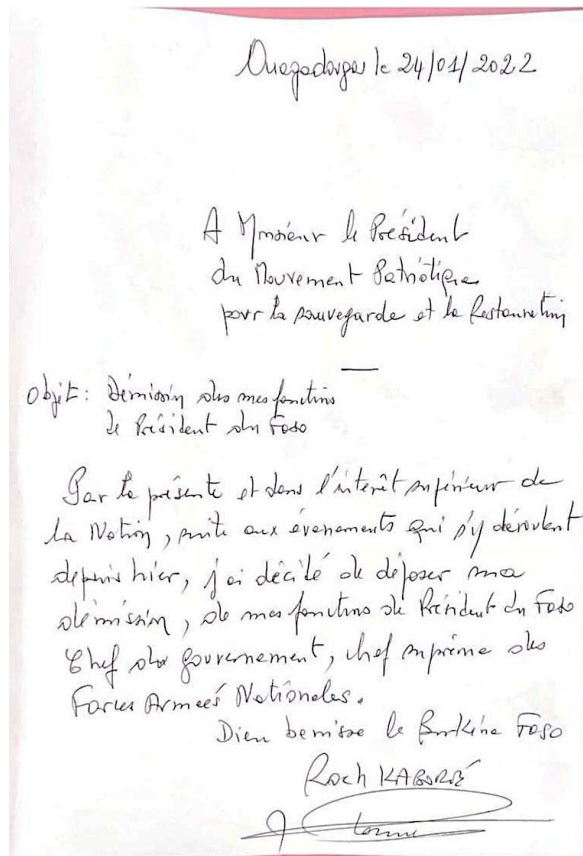 Ouagadougou le 24/01/2022
A Monsieur le Président
du Mouvement Patriotique
pour la sauvegarde et la Restauration
Objet: Démission des mes fonctions
de Président du Faso
Par la présente et dans l'intérêt supérieur de
la Nation, suite aux évenements qui s'y déroulent
depuis hier, j'ai décidé de déposer ma
démission, de mes fonctions de Président du Faso
Chef du gouvernement, chef suprême des
Forces Armées Nationales.
Dieu benisse le Burkina Faso
Roch KABORÉ